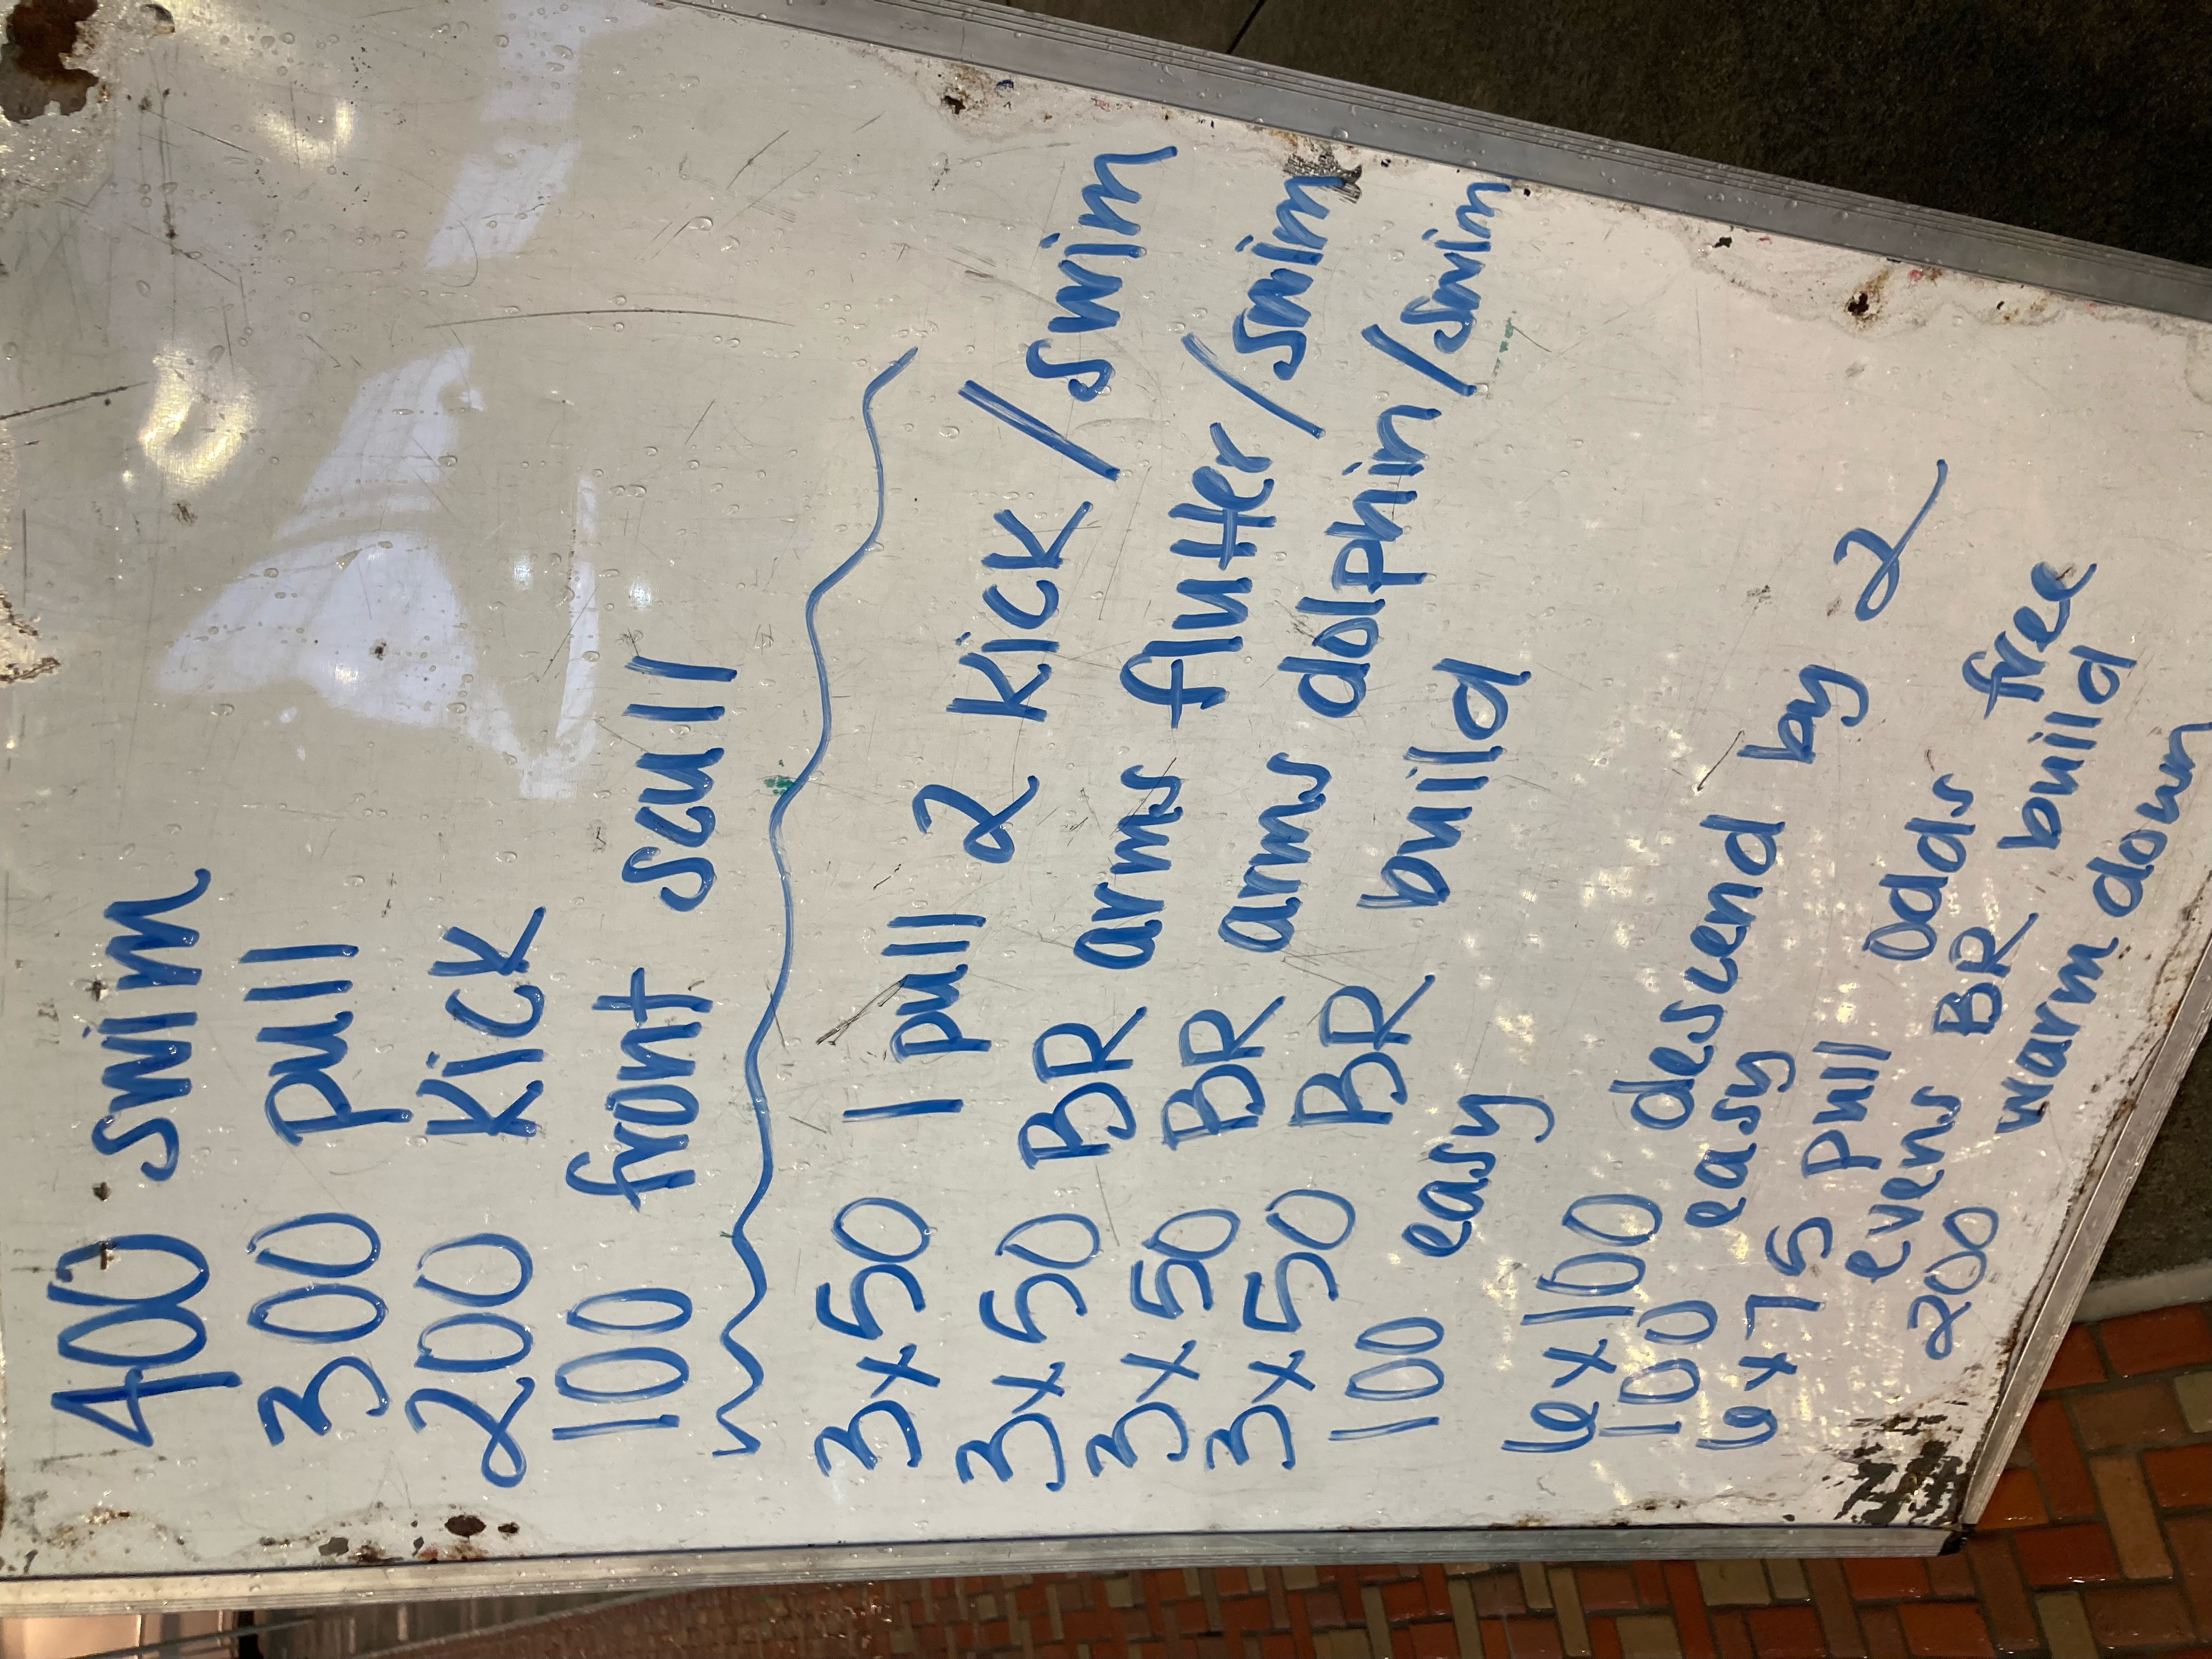 400 swim
300 pull
200 kick
100 front scull
3x50 1 pull 2 kick/swim
3x50 BR arms flutter/swim
3x50 BR arms dolphin/swim
3x50 BR build
100 easy
6x100 descend by 2
100 easy
6x75 pull odds free
evens BR build
200 warm down